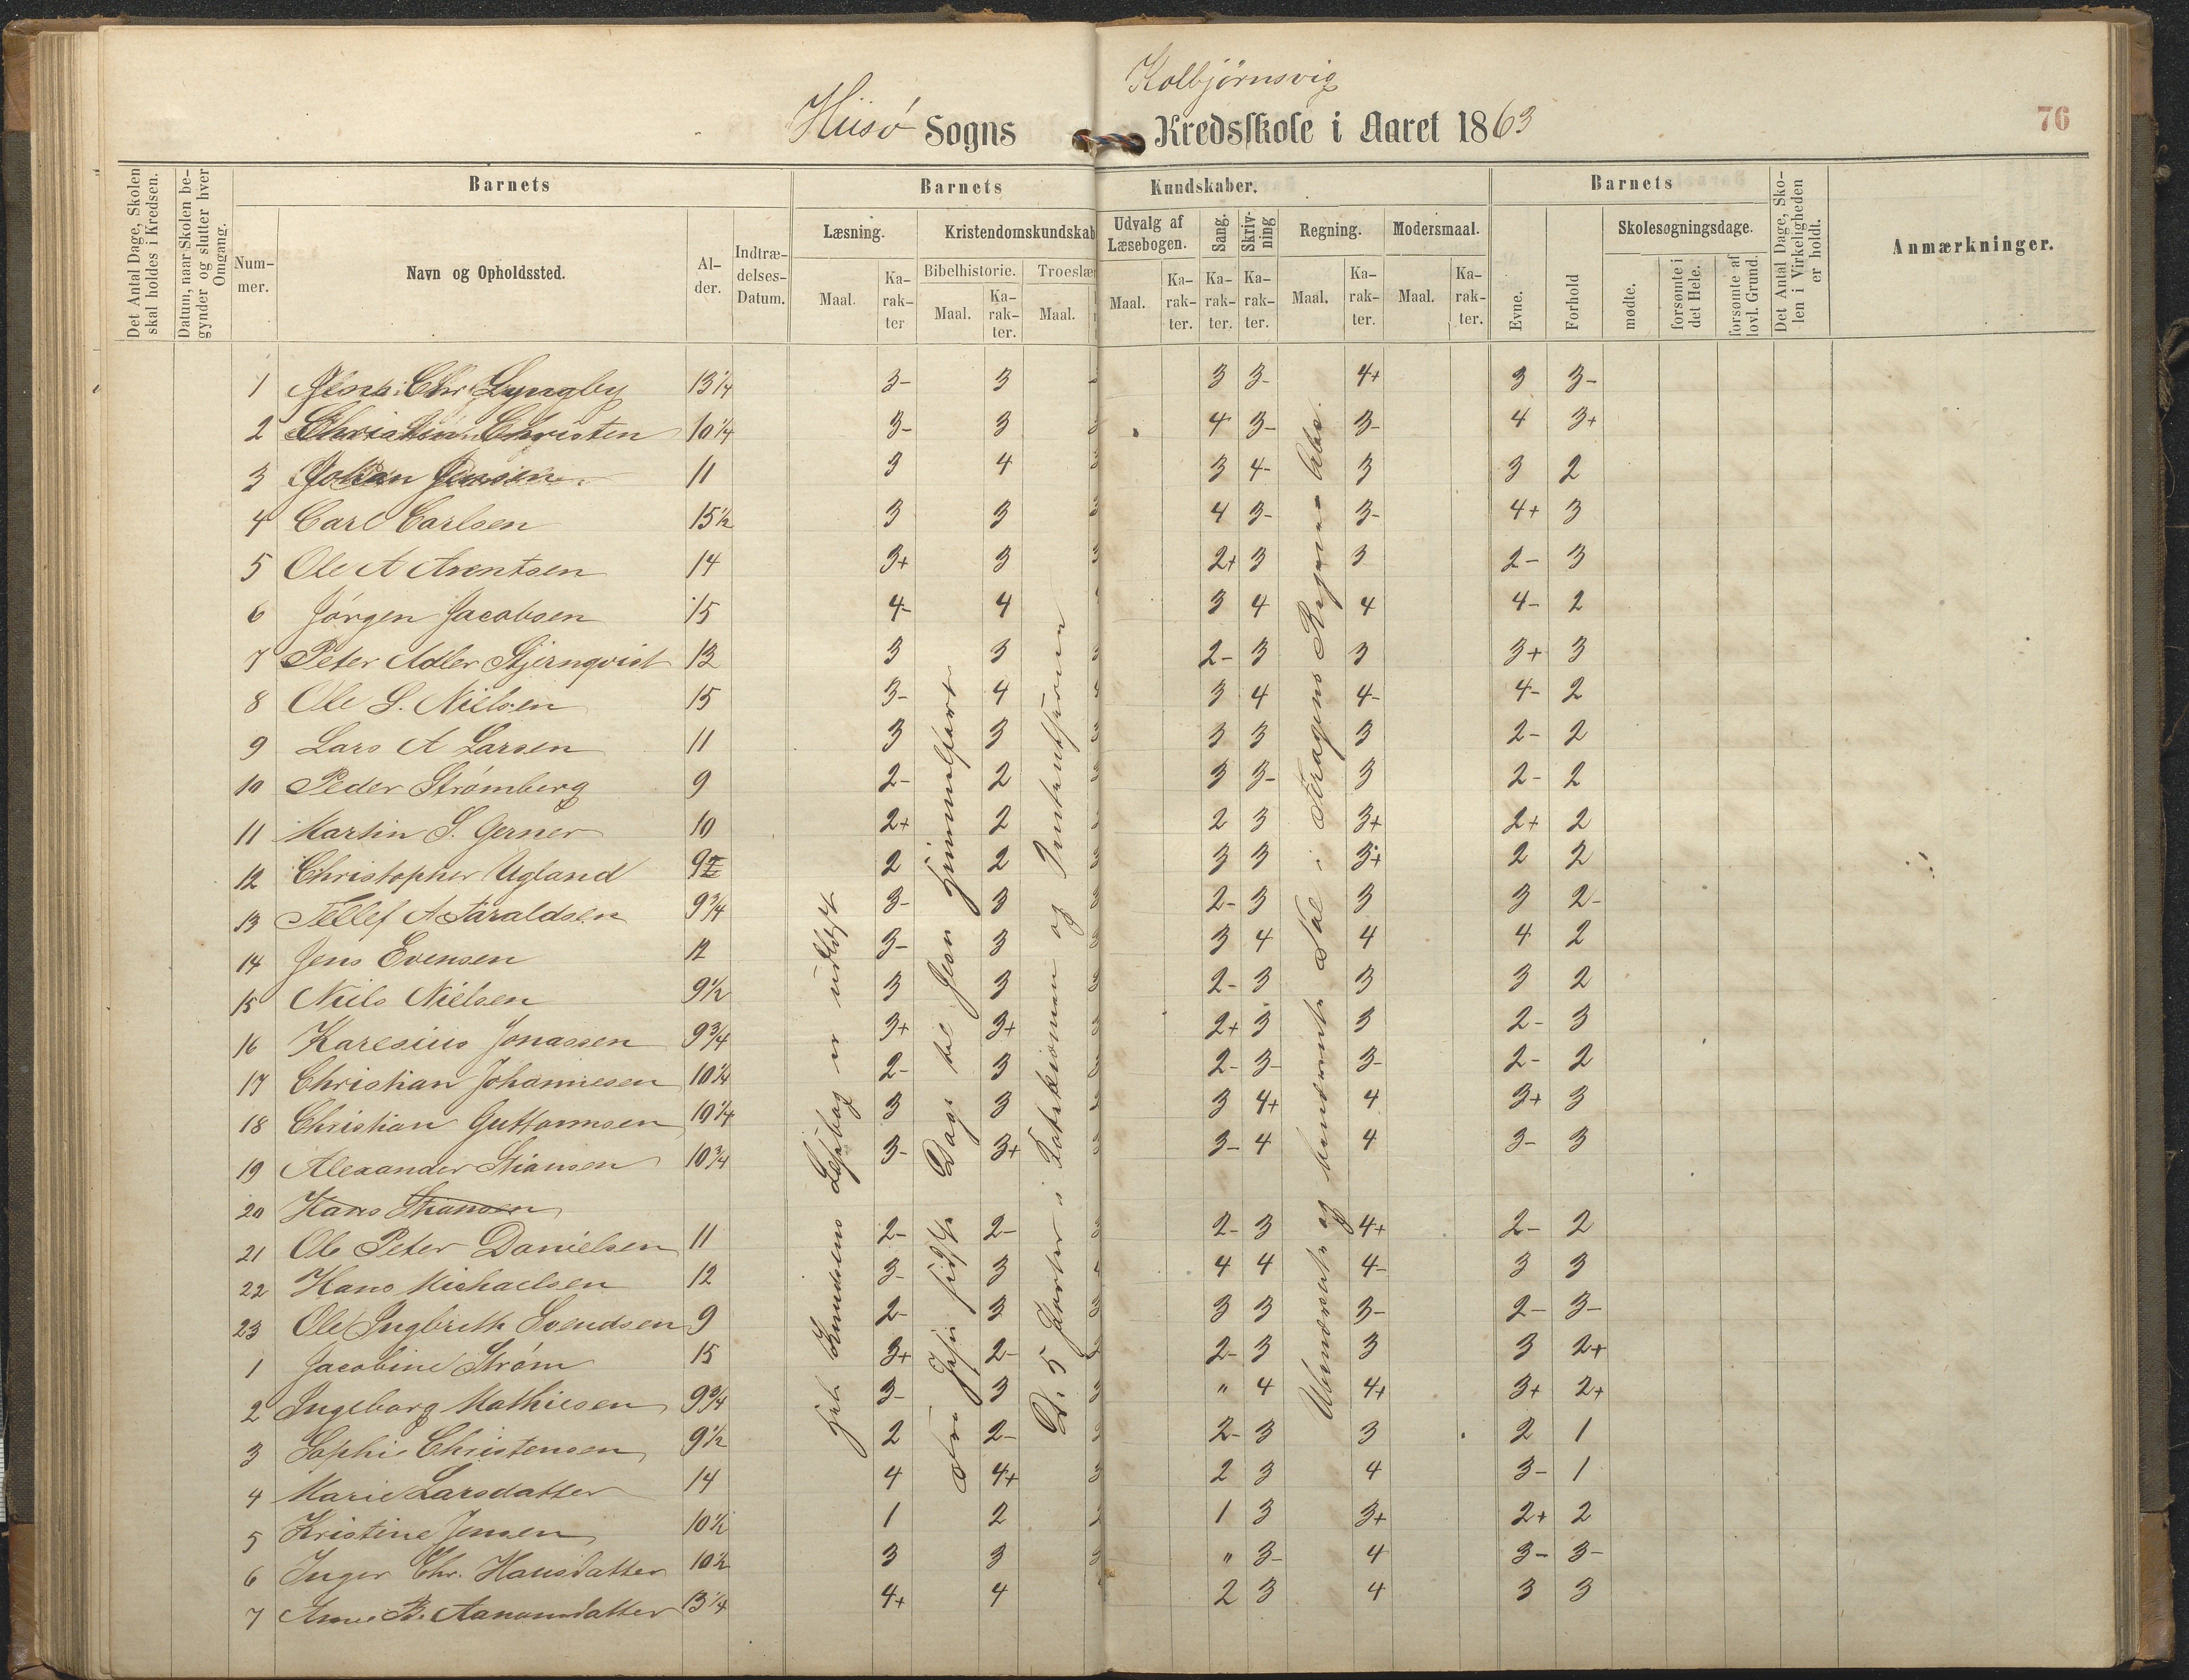 Kolbjørnsvig
Hiisø Sogns Kredsskole i Aaret 1863
76
Det Antal Dage, Skolen skal holdes i Kredsen.
Datum, naar Skolen begynder og slutter hver Omgang.
Barnets
Barnets Kundskaber.
Barnets
Det Antal Dage, Skolen i Virkeligheden er holdt.
Anmærkninger.
Nummer.
Navn og Opholdssted.
Alder.
Indtrædelses-Datum.
Læsning.
Kristendomskundskab
Udvalg af Læsebogen.
Sang.
Skrivning
Regning.
Modersmaal.
Evne.
Forhold
Skolesøgningsdage.
Bibelhistorie.
Troeslær
Maal.
Karakter
Maal.
Karakter.
Maal.
Maal.
Karakter.
Karakter.
Karakter.
Maal.
Karakter.
Maal.
Karakter.
mødte.
forsømte i det Hele.
forsømte af lovl. Grund.
1 Chr. Lyngby 13 1/4 3- 3 3 3- 4+ 3 3-
2 Christian Christen 10 1/4 3- 3 4 3- 3- 4 3+
3 Johan Jensen 11 3 4 3 4- 3 3 2
4 Carl Carlsen 15 1/2 3 3 4 3- 3- 4+ 3
5 Ole A Arentsen 14 3+ 3 2+ 3 3 2- 3
6 Jørgen Jacobsen 15 4- 4 3 4 4 4- 2
7 Peter Adler Stjernqvist 13 3 3 2- 3 3 3+ 3
8 Ole S. Nielsen 15 3- 4 3 4 4- 4- 2
9 Lars A Larsen 11 3 3 3 3 3 2- 2
10 Peder Strømberg 9 2- 2 3 3- 3 2- 2
11 Martin S. Gerner 10 2+ 2 2 3 3+ 2+ 2
12 Christopher Ugland 9 2 2 3 3 3+ 2 2
13 Tellef A Taraldsen 9 3/4 3- 3 2- 3 3 3 2-
14 Jens Evensen 12 3- 3 3 4 4 4 2
15 Niels Nielsen 9 1/2 3 3 2- 3 3 3 2
16 Karesius Jonassen 9 3/4 3+ 3+ 2+ 3 3 2- 3
17 Christian Johannesen 10 1/4 2- 3 2- 3- 3- 2- 2
18 Christian Guttormsen 10 1/4 3 3 3 4+ 4 3+ 3
19 Alexander Stiansen 10 3/4 3- 3+ 3- 4 4 3- 3
20 Hans Stiansen
21 Ole Peter Danielsen 11 2- 2- 2- 3 4+ 2- 2
22 Hans Michaelsen 12 3- 3 4 4 4- 3 3
23 Ole Ingbreth Svendsen 9 2- 3 3 3 3- 2- 3-
1 Jacobine Strøm 15 3+ 2- 2- 3 3 3 2+
2 Ingeborg Mathiesen 9 3/4 3- 3 " 4 4+ 3+ 2+
3 Sophie Christensen 9 1/2 2 2- 2- 3 3 2 1
4 Marie Larsdatter 14 4 4+ 2 3 4 3- 1
5 Kristine Jensen 10 1/2 1 2 1 3 3+ 2+ 2
6 Inger Chr. Hansdatter 10 1/2 3 3 " 3- 4 3- 3-
7 Anne B. Aanonsdatter 13 1/4 4+ 4 2 3 4 3 3
Knudsens Læsebog er
Fra Jesu sidste Dage til Jesu Himmelfart
De 5 Parter i Katekismen og
Ubenævnte og benævnte Tal i